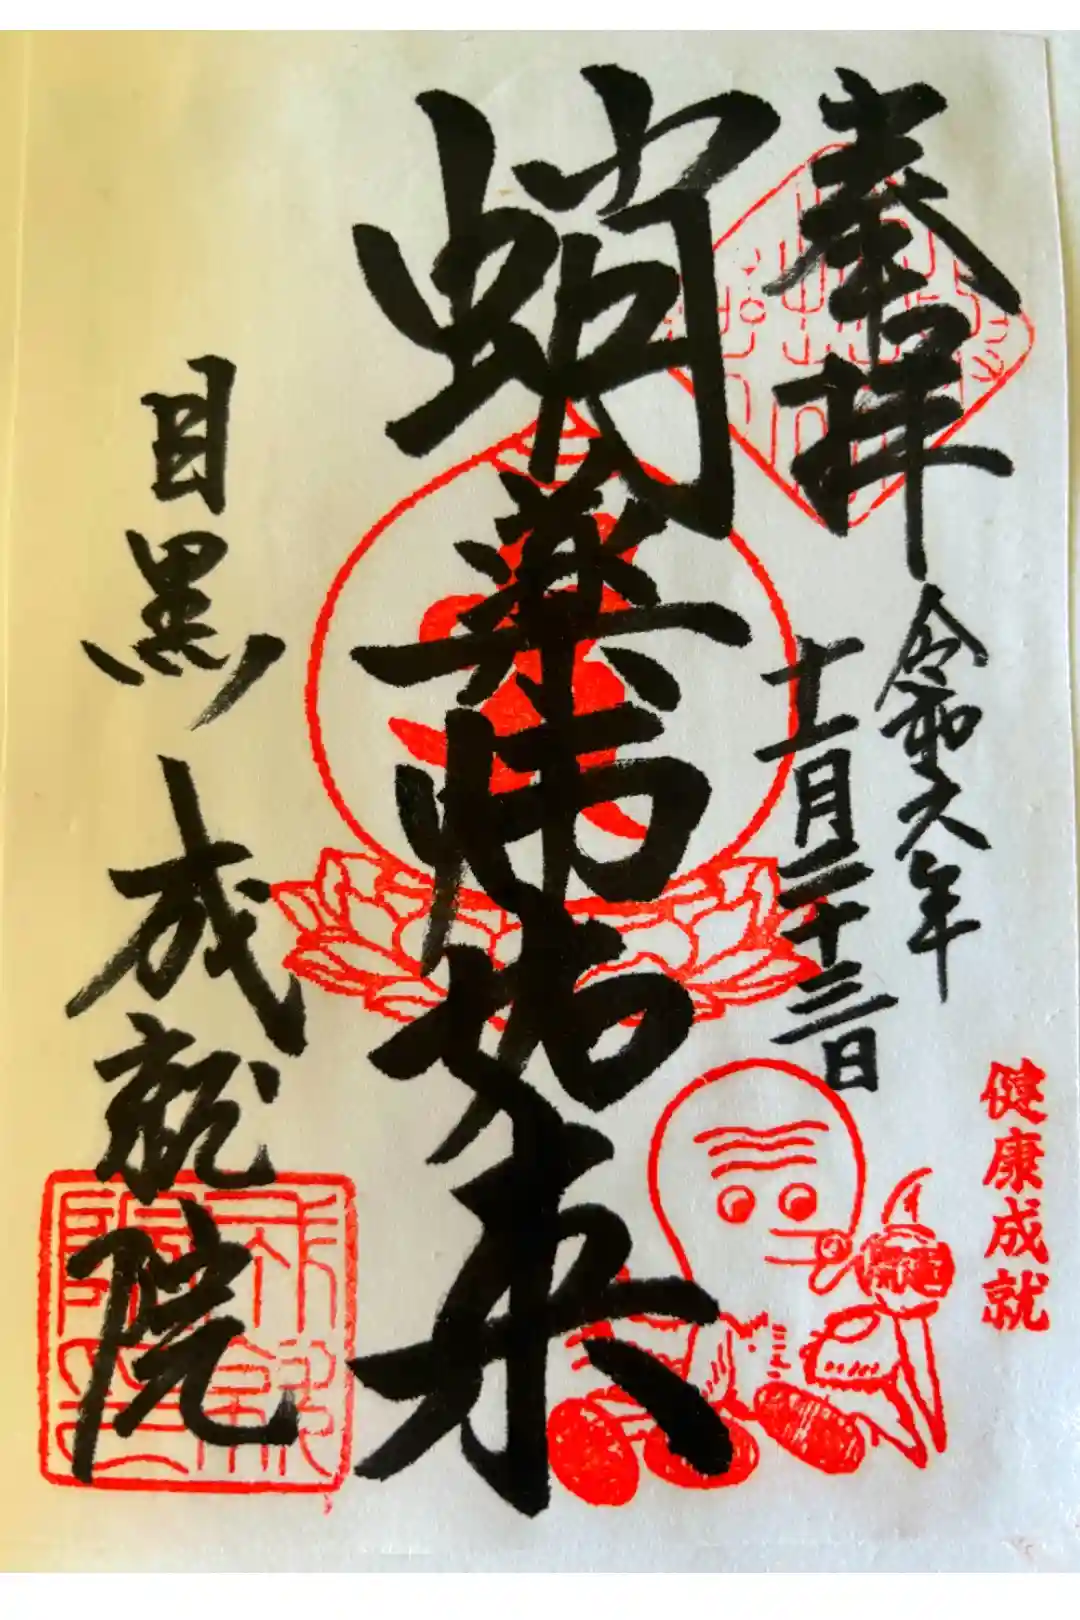 奉拝
令和六年
十一月二十三日
蛸薬師如来
目黒 成就院
健康成就